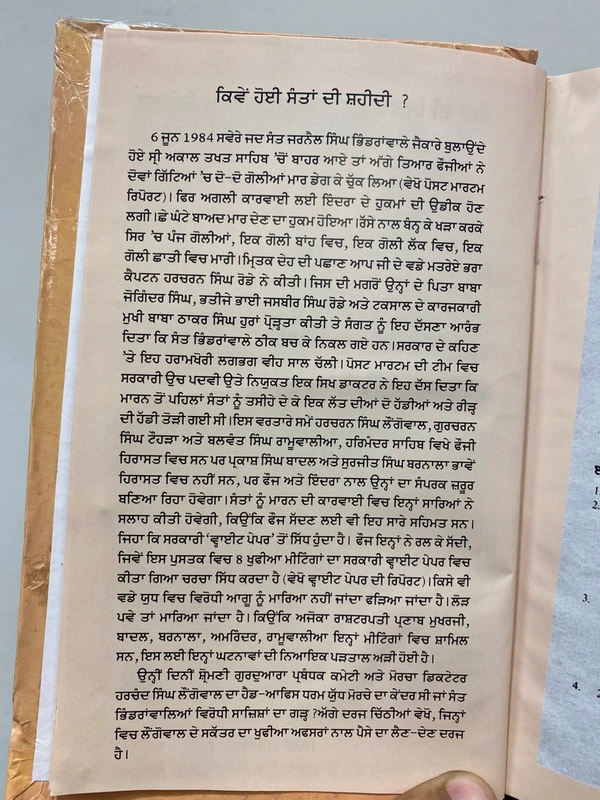 ਕਿਵੇਂ ਹੋਈ ਸੰਤਾਂ ਦੀ ਸ਼ਹੀਦੀ ?
6 ਜੂਨ 1984 ਸਵੇਰੇ ਜਦ ਸੰਤ ਜਰਨੈਲ ਸਿੰਘ ਭਿੰਡਰਾਂਵਾਲੇ ਜੈਕਾਰੇ ਬੁਲਾਉਂਦੇ
ਹੋਏ ਸ੍ਰੀ ਅਕਾਲ ਤਖਤ ਸਾਹਿਬ 'ਚੋਂ ਬਾਹਰ ਆਏ ਤਾਂ ਅੱਗੇ ਤਿਆਰ ਫੌਜੀਆਂ ਨੇ
ਦੋਵਾਂ ਗਿੱਟਿਆਂ 'ਚ ਦੋ-ਦੋ ਗੋਲੀਆਂ ਮਾਰ ਡੇਗ ਕੇ ਚੁੱਕ ਲਿਆ (ਵੇਖੋ ਪੋਸਟ ਮਾਰਟਮ
ਰਿਪੋਰਟ)। ਫਿਰ ਅਗਲੀ ਕਾਰਵਾਈ ਲਈ ਇੰਦਰਾ ਦੇ ਹੁਕਮਾਂ ਦੀ ਉਡੀਕ ਹੋਣ
ਲਗੀ।ਛੇ ਘੰਟੇ ਬਾਅਦ ਮਾਰ ਦੇਣ ਦਾ ਹੁਕਮ ਹੋਇਆ।ਰੱਸੇ ਨਾਲ ਬੰਨ੍ਹ ਕੇ ਖੜਾ ਕਰਕੇ
ਸਿਰ 'ਚ ਪੰਜ ਗੋਲੀਆਂ, ਇਕ ਗੋਲੀ ਬਾਂਹ ਵਿਚ, ਇਕ ਗੋਲੀ ਲੱਕ ਵਿਚ, ਇਕ
ਗੋਲੀ ਛਾਤੀ ਵਿਚ ਮਾਰੀ।ਮ੍ਰਿਤਕ ਦੇਹ ਦੀ ਪਛਾਣ ਆਪ ਜੀ ਦੇ ਵਡੇ ਮਤਰੇਏ ਭਰਾ
ਕੈਪਟਨ ਹਰਚਰਨ ਸਿੰਘ ਰੋਡੇ ਨੇ ਕੀਤੀ। ਜਿਸ ਦੀ ਮਗਰੋਂ ਉਨ੍ਹਾਂ ਦੇ ਪਿਤਾ ਬਾਬਾ
ਜੋਗਿੰਦਰ ਸਿੰਘ, ਭਤੀਜੇ ਭਾਈ ਜਸਬੀਰ ਸਿੰਘ ਰੋਡੇ ਅਤੇ ਟਕਸਾਲ ਦੇ ਕਾਰਜਕਾਰੀ
ਮੁਖੀ ਬਾਬਾ ਠਾਕਰ ਸਿੰਘ ਹੁਰਾਂ ਪ੍ਰੋੜ੍ਹਤਾ ਕੀਤੀ ਤੇ ਸੰਗਤ ਨੂੰ ਇਹ ਦੱਸਣਾ ਆਰੰਭ
ਦਿਤਾ ਕਿ ਸੰਤ ਭਿੰਡਰਾਂਵਾਲੇ ਠੀਕ ਬਚ ਕੇ ਨਿਕਲ ਗਏ ਹਨ।ਸਰਕਾਰ ਦੇ ਕਹਿਣ
'ਤੇ ਇਹ ਹਰਾਮਖੋਰੀ ਲਗਭਗ ਵੀਹ ਸਾਲ ਚੱਲੀ। ਪੋਸਟ ਮਾਰਟਮ ਦੀ ਟੀਮ ਵਿਚ
ਸਰਕਾਰੀ ਉਚ ਪਦਵੀ ਉਤੇ ਨਿਯੁਕਤ ਇਕ ਸਿਖ ਡਾਕਟਰ ਨੇ ਇਹ ਦੱਸ ਦਿਤਾ ਕਿ
ਮਾਰਨ ਤੋਂ ਪਹਿਲਾਂ ਸੰਤਾਂ ਨੂੰ ਤਸੀਹੇ ਦੇ ਕੇ ਇਕ ਲੱਤ ਦੀਆਂ ਦੋ ਹੱਡੀਆਂ ਅਤੇ ਰੀੜ੍ਹ
ਦੀ ਹੱਡੀ ਤੋੜੀ ਗਈ ਸੀ।ਇਸ ਵਰਤਾਰੇ ਸਮੇਂ ਹਰਚਰਨ ਸਿੰਘ ਲੌਂਗੋਵਾਲ, ਗੁਰਚਰਨ
ਸਿੰਘ ਟੌਹੜਾ ਅਤੇ ਬਲਵੰਤ ਸਿੰਘ ਰਾਮੂਵਾਲੀਆ, ਹਰਿਮੰਦਰ ਸਾਹਿਬ ਵਿਖੇ ਫੌਜੀ
ਹਿਰਾਸਤ ਵਿਚ ਸਨ ਪਰ ਪ੍ਰਕਾਸ਼ ਸਿੰਘ ਬਾਦਲ ਅਤੇ ਸੁਰਜੀਤ ਸਿੰਘ ਬਰਨਾਲਾ ਭਾਵੇਂ
ਹਿਰਾਸਤ ਵਿਚ ਨਹੀਂ ਸਨ, ਪਰ ਫੌਜ ਅਤੇ ਇੰਦਰਾ ਨਾਲ ਉਨ੍ਹਾਂ ਦਾ ਸੰਪਰਕ ਜ਼ਰੂਰ
ਬਣਿਆ ਰਿਹਾ ਹੋਵੇਗਾ।ਸੰਤਾਂ ਨੂੰ ਮਾਰਨ ਦੀ ਕਾਰਵਾਈ ਵਿਚ ਇਨ੍ਹਾਂ ਸਾਰਿਆਂ ਨੇ
ਸਲਾਹ ਕੀਤੀ ਹੋਵੇਗੀ, ਕਿਉਂਕਿ ਫੌਜ ਸੱਦਣ ਲਈ ਵੀ ਇਹ ਸਾਰੇ ਸਹਿਮਤ ਸਨ।
ਜਿਹਾ ਕਿ ਸਰਕਾਰੀ 'ਵ੍ਹਾਈਟ ਪੇਪਰ' ਤੋਂ ਸਿੱਧ ਹੁੰਦਾ ਹੈ। ਫੌਜ ਇਨ੍ਹਾਂ ਨੇ ਰਲ ਕੇ ਸੱਦੀ,
ਜਿਵੇਂ ਇਸ ਪੁਸਤਕ ਵਿਚ 8 ਖੁਫੀਆ ਮੀਟਿੰਗਾਂ ਦਾ ਸਰਕਾਰੀ ਵ੍ਹਾਈਟ ਪੇਪਰ ਵਿਚ
ਕੀਤਾ ਗਿਆ ਚਰਚਾ ਸਿੱਧ ਕਰਦਾ ਹੈ (ਵੇਖੋ ਵ੍ਹਾਈਟ ਪੇਪਰ ਦੀ ਰਿਪੋਰਟ)।ਕਿਸੇ ਵੀ
ਵਡੇ ਯੁਧ ਵਿਚ ਵਿਰੋਧੀ ਆਗੂ ਨੂੰ ਮਾਰਿਆ ਨਹੀਂ ਜਾਂਦਾ ਫੜਿਆ ਜਾਂਦਾ ਹੈ। ਲੋੜ
ਪਵੇ ਤਾਂ ਮਾਰਿਆ ਜਾਂਦਾ ਹੈ। ਕਿਉਂਕਿ ਅਜੋਕਾ ਰਾਸ਼ਟਰਪਤੀ ਪ੍ਰਣਾਬ ਮੁਖਰਜੀ,
ਬਾਦਲ, ਬਰਨਾਲਾ, ਅਮਰਿੰਦਰ, ਰਾਮੂਵਾਲੀਆ ਇਨ੍ਹਾਂ ਮੀਟਿੰਗਾਂ ਵਿਚ ਸ਼ਾਮਿਲ
ਸਨ, ਇਸ ਲਈ ਇਨ੍ਹਾਂ ਘਟਨਾਵਾਂ ਦੀ ਨਿਆਇਕ ਪੜਤਾਲ ਅੜੀ ਹੋਈ ਹੈ।
ਉਨ੍ਹੀਂ ਦਿਨੀਂ ਸ਼੍ਰੋਮਣੀ ਗੁਰਦੁਆਰਾ ਪ੍ਰਬੰਧਕ ਕਮੇਟੀ ਅਤੇ ਮੋਰਚਾ ਡਿਕਟੇਟਰ
ਹਰਚੰਦ ਸਿੰਘ ਲੌਂਗੋਵਾਲ ਦਾ ਹੈਡ-ਆਫਿਸ ਧਰਮ ਯੁੱਧ ਮੋਰਚੇ ਦਾ ਕੇਂਦਰ ਸੀ ਜਾਂ ਸੰਤ
ਭਿੰਡਰਾਂਵਾਲਿਆਂ ਵਿਰੋਧੀ ਸਾਜ਼ਿਸ਼ਾਂ ਦਾ ਗੜ੍ਹ ?ਅੱਗੇ ਦਰਜ ਚਿੱਠੀਆਂ ਵੇਖੋ, ਜਿਨ੍ਹਾਂ
ਵਿਚ ਲੌਂਗੋਵਾਲ ਦੇ ਸਕੱਤਰ ਦਾ ਖੁਫੀਆ ਅਫਸਰਾਂ ਨਾਲ ਪੈਸੇ ਦਾ ਲੈਣ-ਦੇਣ ਦਰਜ
ਹੈ।
1.
2.
3.
4.